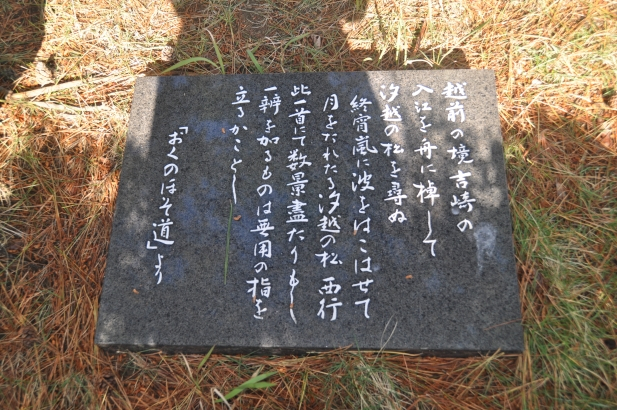 越前の境吉崎の
入江を舟に棹して
汐越の松を尋ぬ
終宵嵐に波をはこはせて
月をたれたる汐越の松 西行
此一首にて数景盡たりもし
一辨を加るものは無用の指を
立るかことし
「おくのほそ道」より